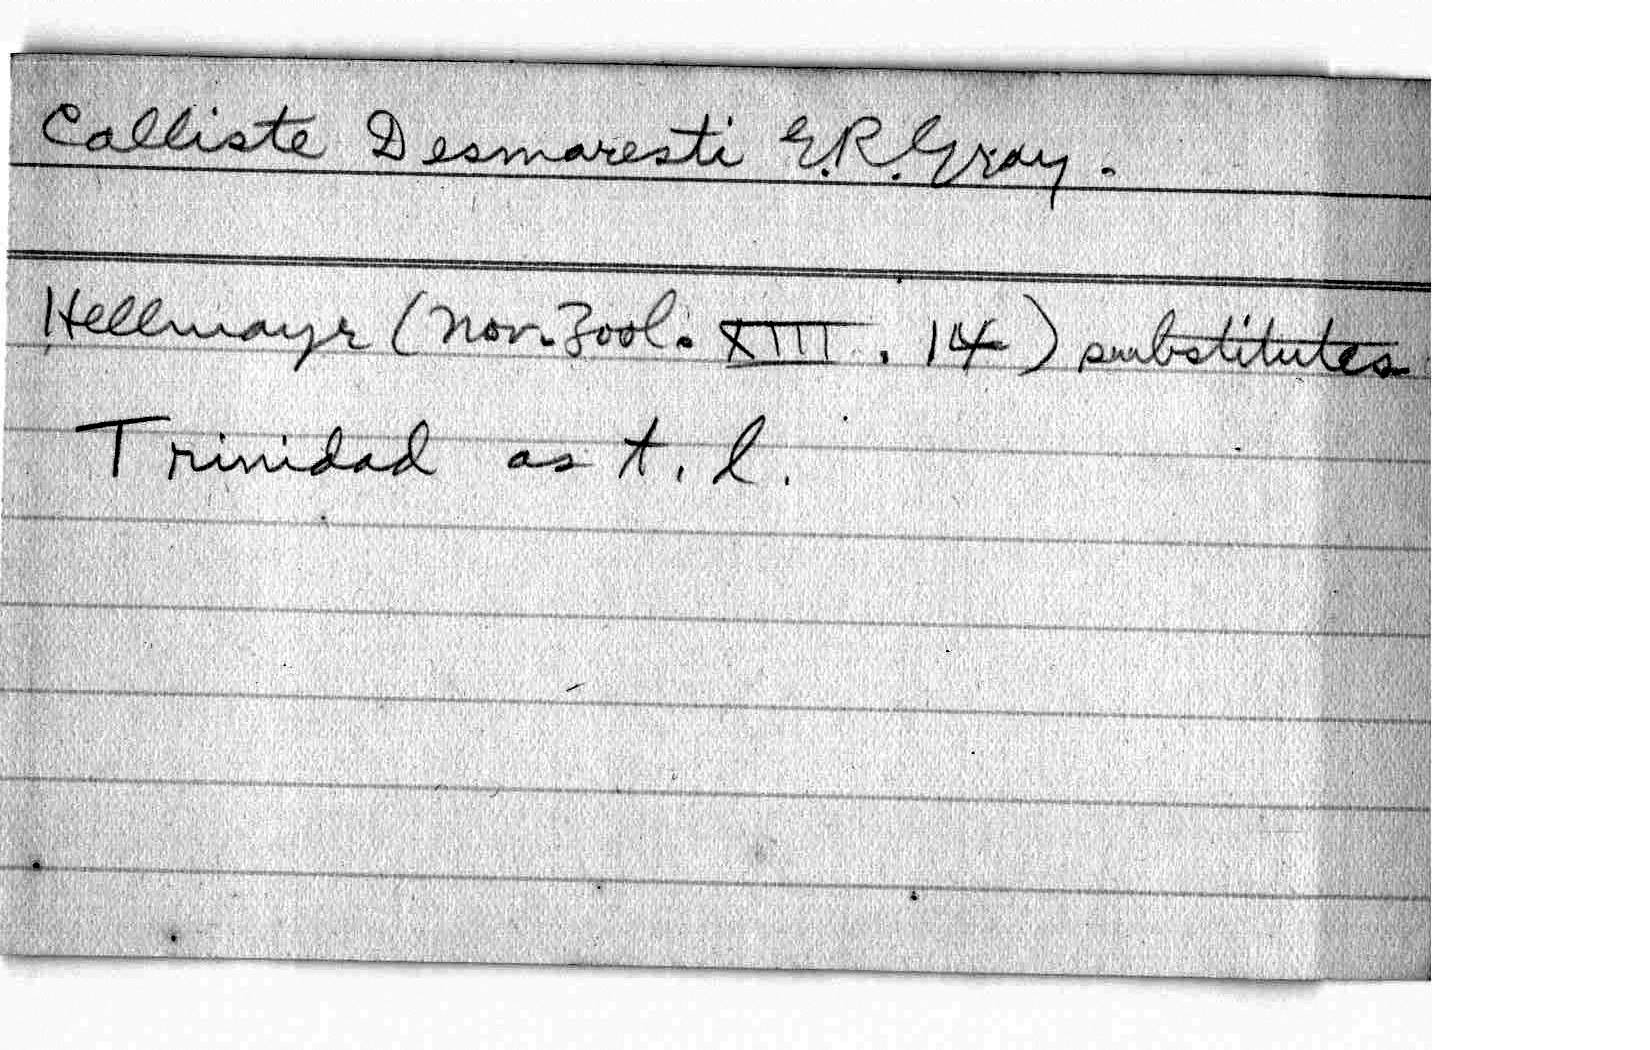 Calliste Desmaresti G.R. Gray.
Hellmayr (Nov. Zool. XIII. 14) substitutes
Trinidad as t. l.